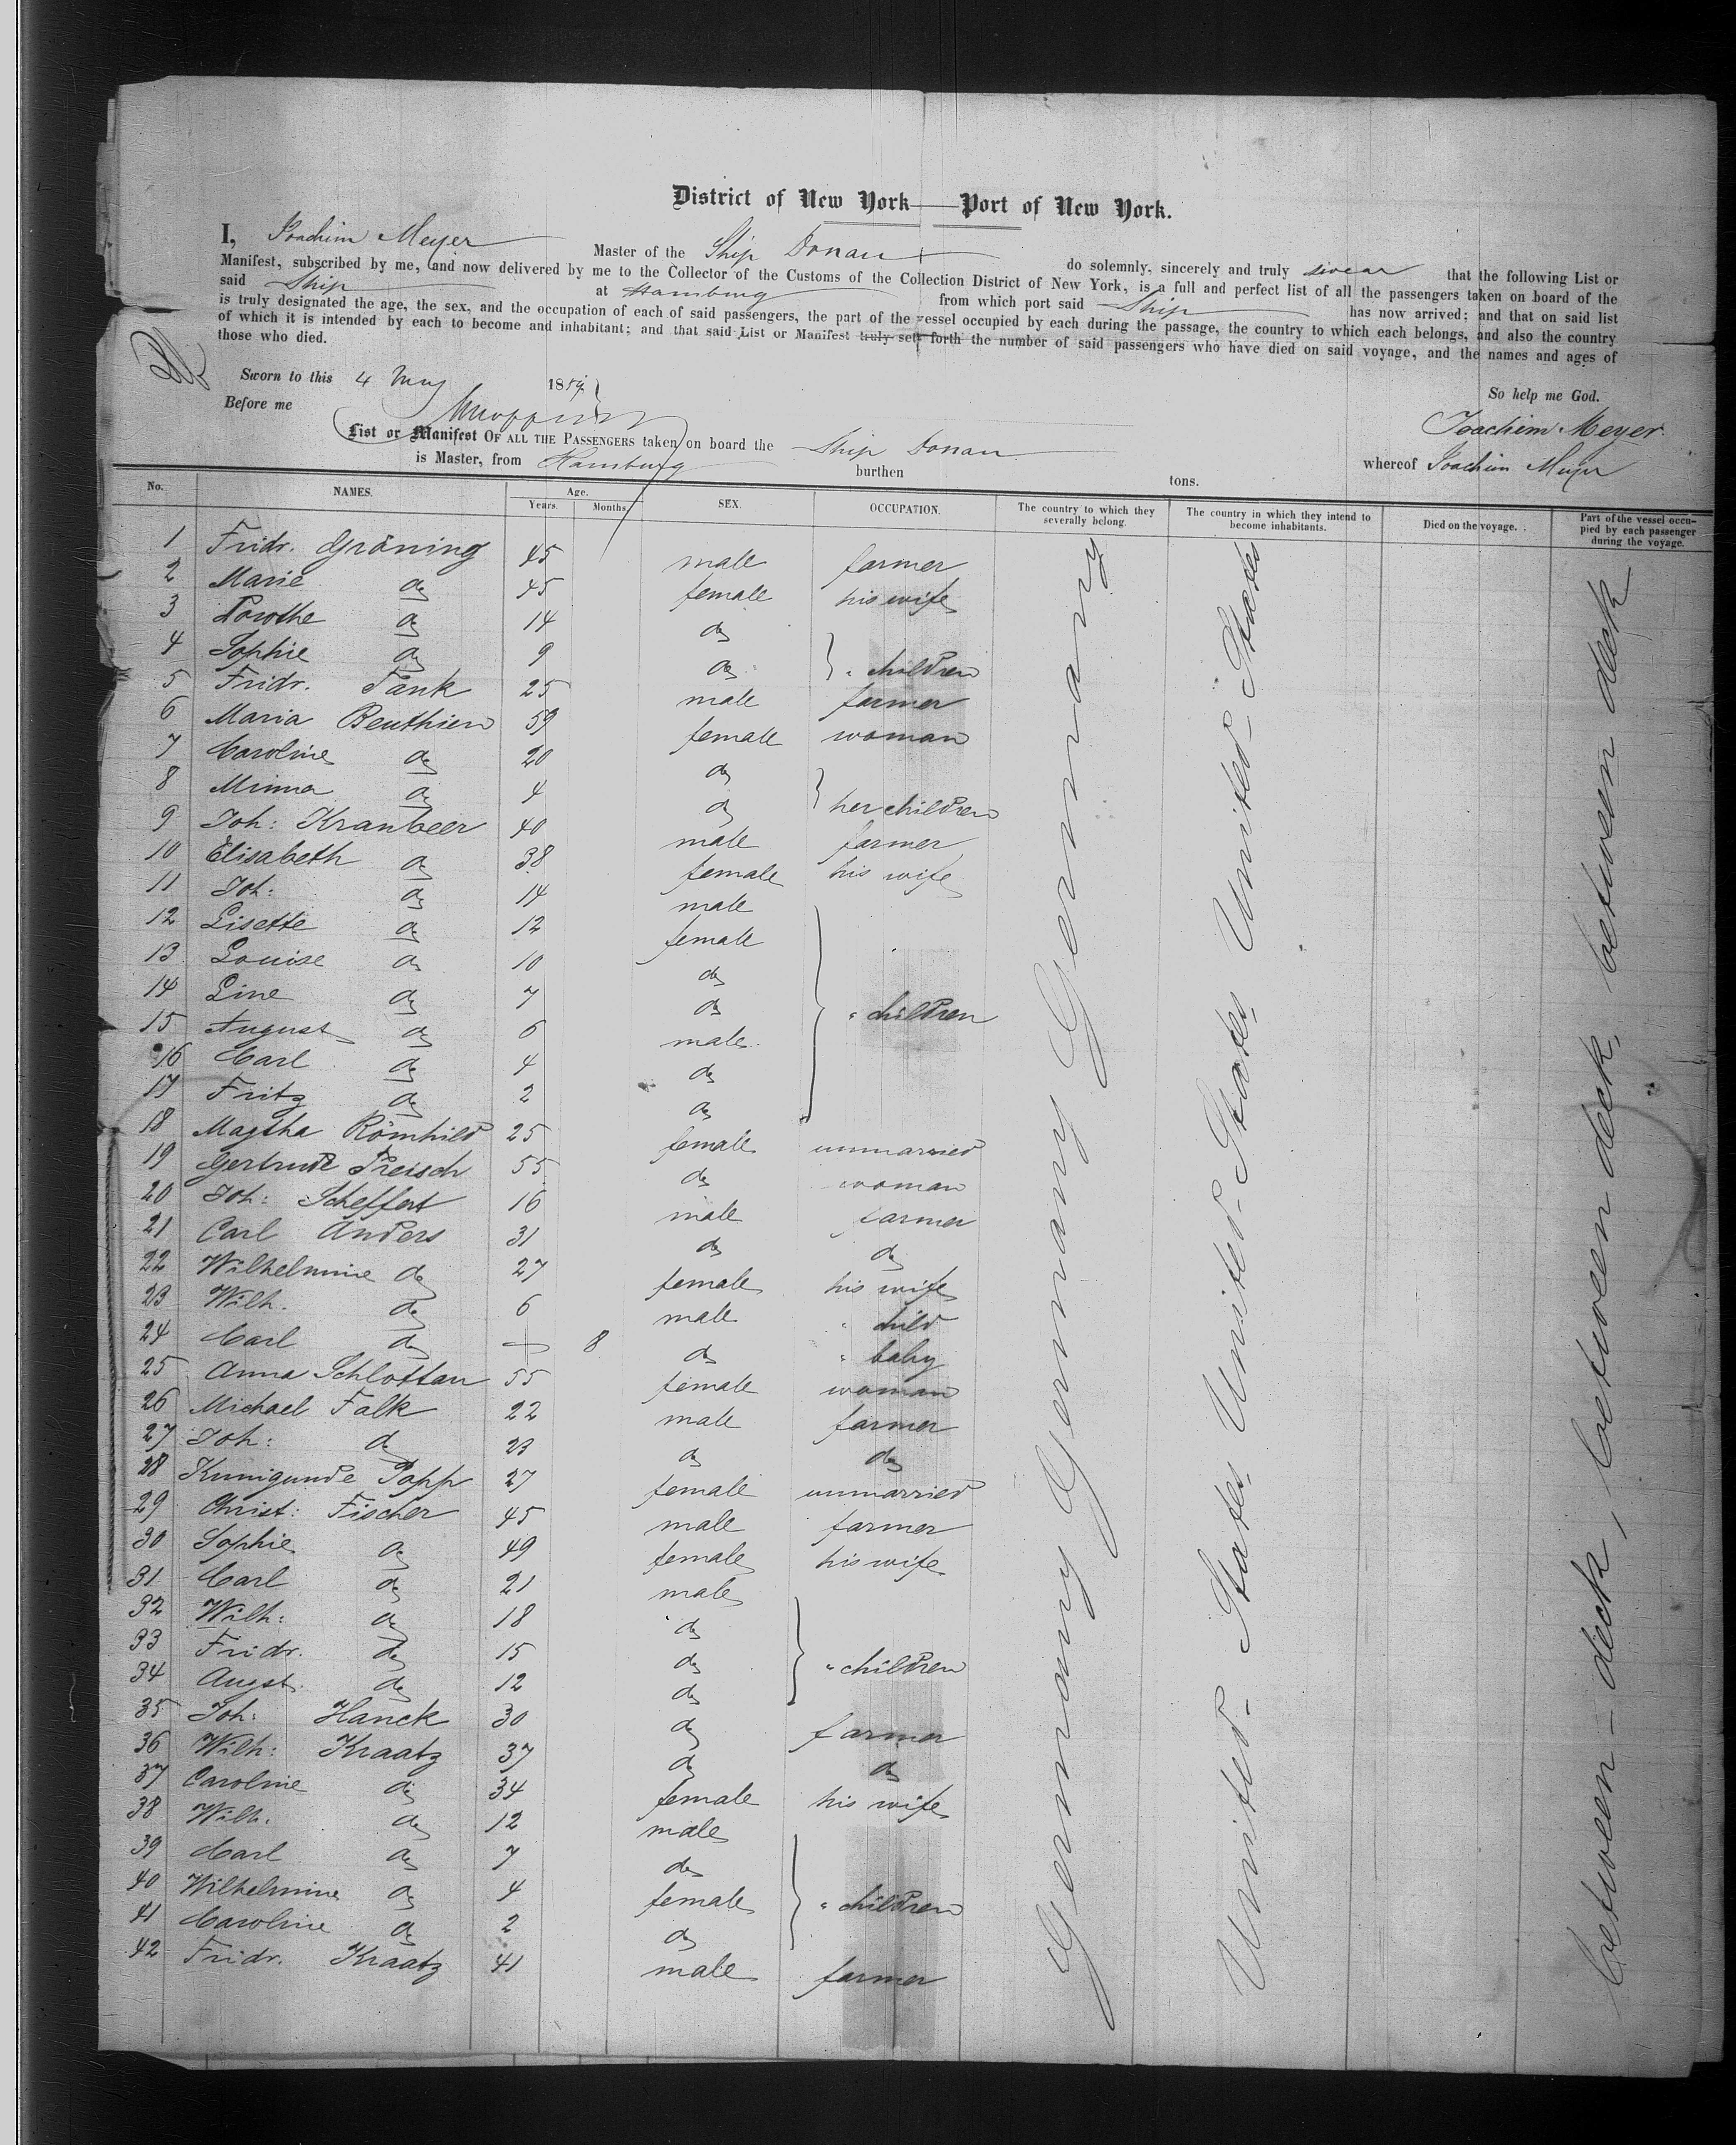 District of New York—Port of New York.
I, Joachim Meyer Master of the Ship Donau do solemnly, sincerely and truly swear that the following List or
Manifest, subscribed by me, and now delivered by me to the Collector of the Customs of the Collection District of New York, is a full and perfect list of all the passengers taken on board of the
said Ship at Hamburg from which port said Ship has now arrived; and that on said list
is truly designated the age, the sex, and the occupation of each of said passengers, the part of the vessel occupied by each during the passage, the country to which each belongs, and also the country
of which it is intended by each to become and inhabitant; and that said List or Manifest truly sets forth the number of said passengers who have died on said voyage, and the names and ages of
those who died.
Sworn to this 4 May 1857 So help me God.
Before me Joachim Meyer
List or Manifest OF ALL THE PASSENGERS taken on board the Ship Donau whereof Joachim Meyer
is Master, from Hamburg burthen tons.
No. NAMES. Age. Years. Months. SEX. OCCUPATION. The country to which they severally belong. The country in which they intend to become inhabitants. Died on the voyage. Part of the vessel occupied by each passenger during the voyage.
1 Fridr. Gröning 45 male farmer
2 Marie do 45 female his wife
3 Dorothe do 14 do
4 Sophie do 9 do " children
5 Fridr. Tank 25 male farmer
6 Maria Beuthien 59 female woman
7 Caroline do 20 do
8 Minna do 4 do her children
9 Joh: Kranbeer 40 male farmer
10 Elisabeth do 38 female his wife
11 Joh: do 14 male
12 Lisette do 12 female
13 Louise do 10 do
14 Line do 7 do " children
15 August do 6 male
16 Carl do 4 do
17 Fritz do 2 do
18 Magtha Römhild 25 female unmarried
19 Gertrude Preisch 55 do woman
20 Joh: Scheffert 16 male farmer
21 Carl Anders 31 do do
22 Wilhelmine do 27 female his wife
23 Wilh. do 6 male " child
24 Carl do — 8 do " baby
25 Anna Schlottau 55 female woman
26 Michael Falk 22 male farmer
27 Joh: do 23 do do
28 Kunigunde Popp 27 female unmarried
29 Christ: Fischer 45 male farmer
30 Sophie do 49 female his wife
31 Carl do 21 male
32 Wilh: do 18 do
33 Fridr. do 15 do " children
34 Augst. do 12 do
35 Joh: Hanck 30 do farmer
36 Wilh: Kraatz 37 do do
37 Caroline do 34 female his wife
38 Wilh. do 12 male
39 Carl do 7 do
40 Wilhelmine do 4 female " children
41 Caroline do 2 do
42 Fridr. Kraatz 41 male farmer
Germany Germany Germany Germany
United-States United-States United-States
between-deck, between deck, between deck